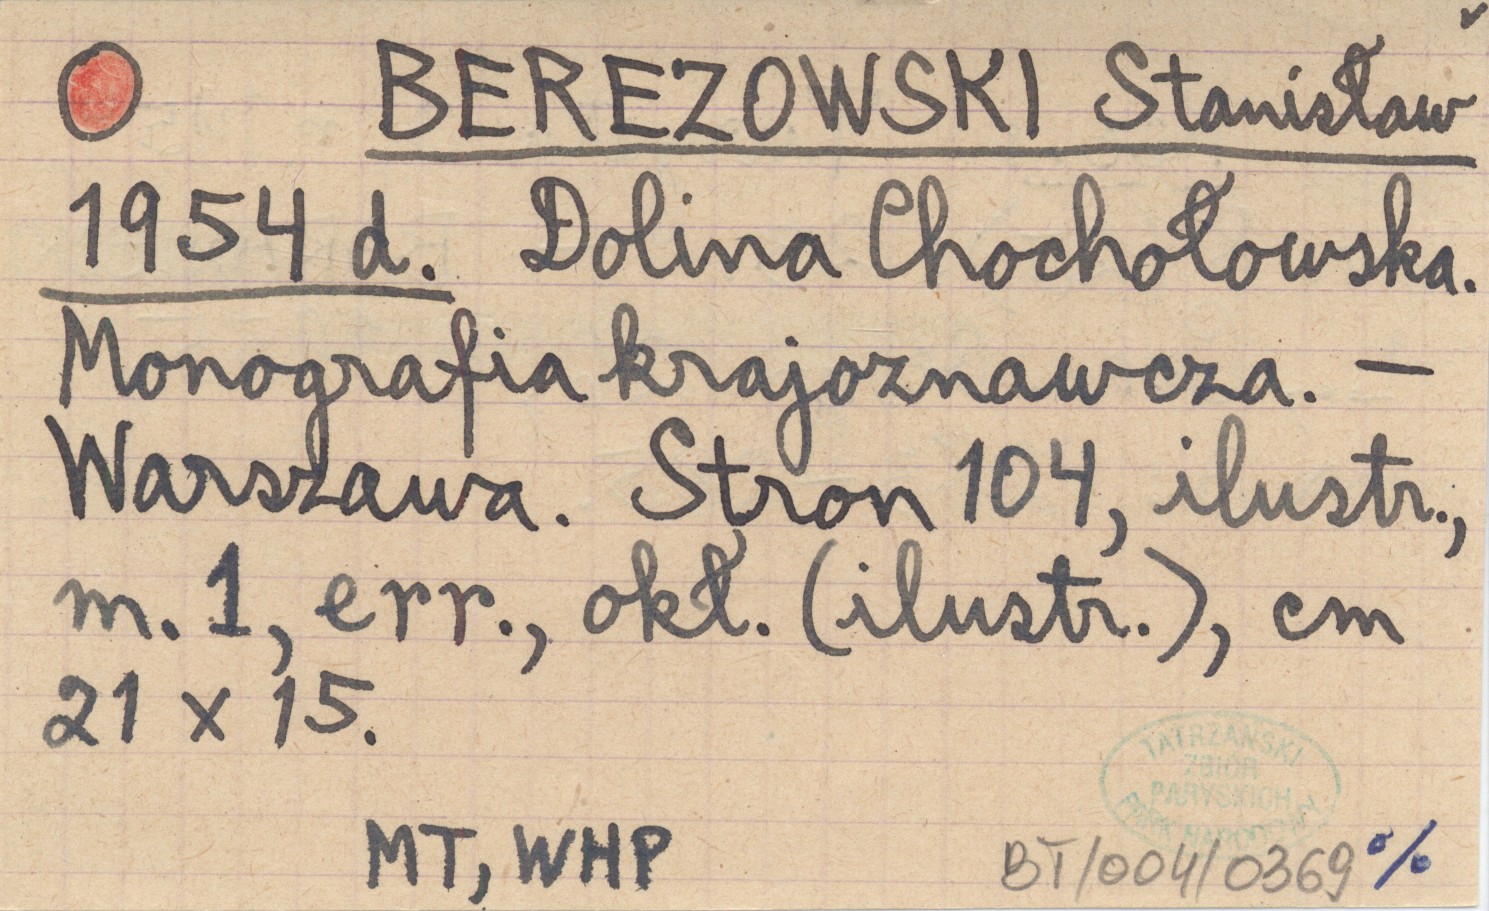 BEREZOWSKI Stanisław
1954 d. Dolina Chochołowska.
Monografia krajoznawcza. —
Warszawa. Stron 104, ilustr.,
m. 1, err., okł. (ilustr.), cm
21 x 15.
TATRZAŃSKI
ZBIÓR
PARYSKICH
PARK NARODOWY
MT, WHP
BT/004/0369 %